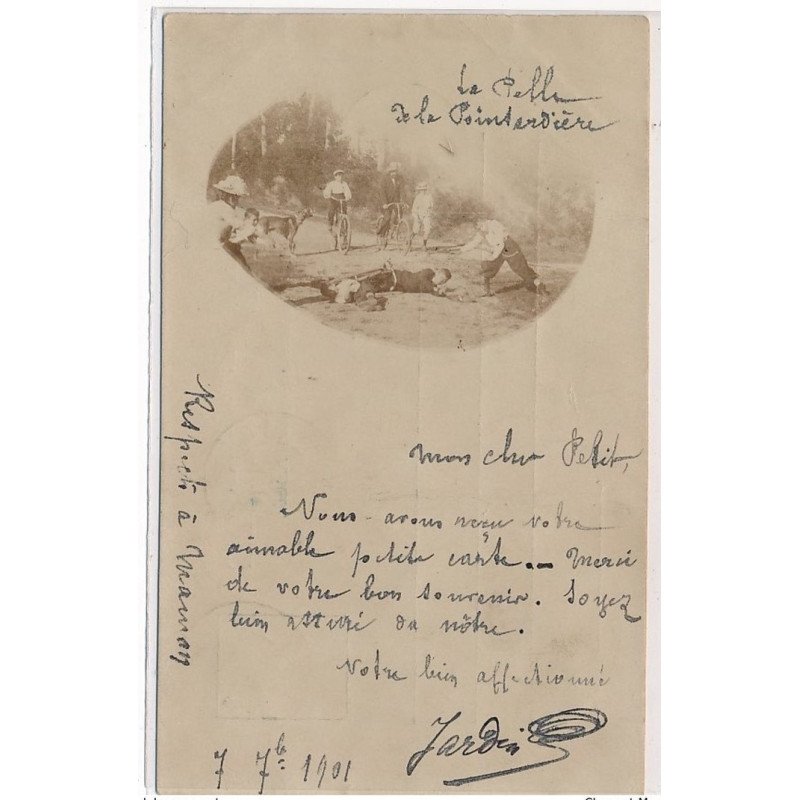 La Pelle
de la Pointardière
Mon cher Petit,
Nous avons reçu votre
aimable petite carte... Merci
de votre bon souvenir. Soyez
bien assuré du nôtre.
Votre bien affectionné
Jardin
7 7b 1901
Respects à Maman